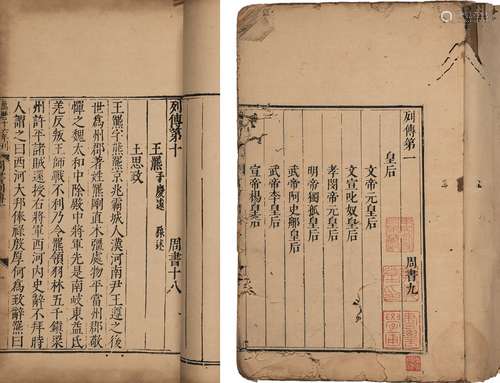 列傳第十 周書十八
王羆 子慶遠 孫述
王思政
王羆字熊羆京兆霸城人漢河南尹王遵之後
世為州郡著姓羆剛直木彊處物平當州郡敬
憚之魏太和中除殿中將軍先是南岐東益氐
羌反叛王師戰不利乃令羆領羽林五千鎮梁
州許平諸賊還授右將軍西河內史辭不拜時
人謂之曰西河大邦俸祿殷厚何為致辭羆曰
列傳第一 周書九
皇后
文帝元皇后
文宣叱奴皇后
孝閔帝元皇后
明帝獨孤皇后
武帝阿史那皇后
武帝李皇后
宣帝楊皇后